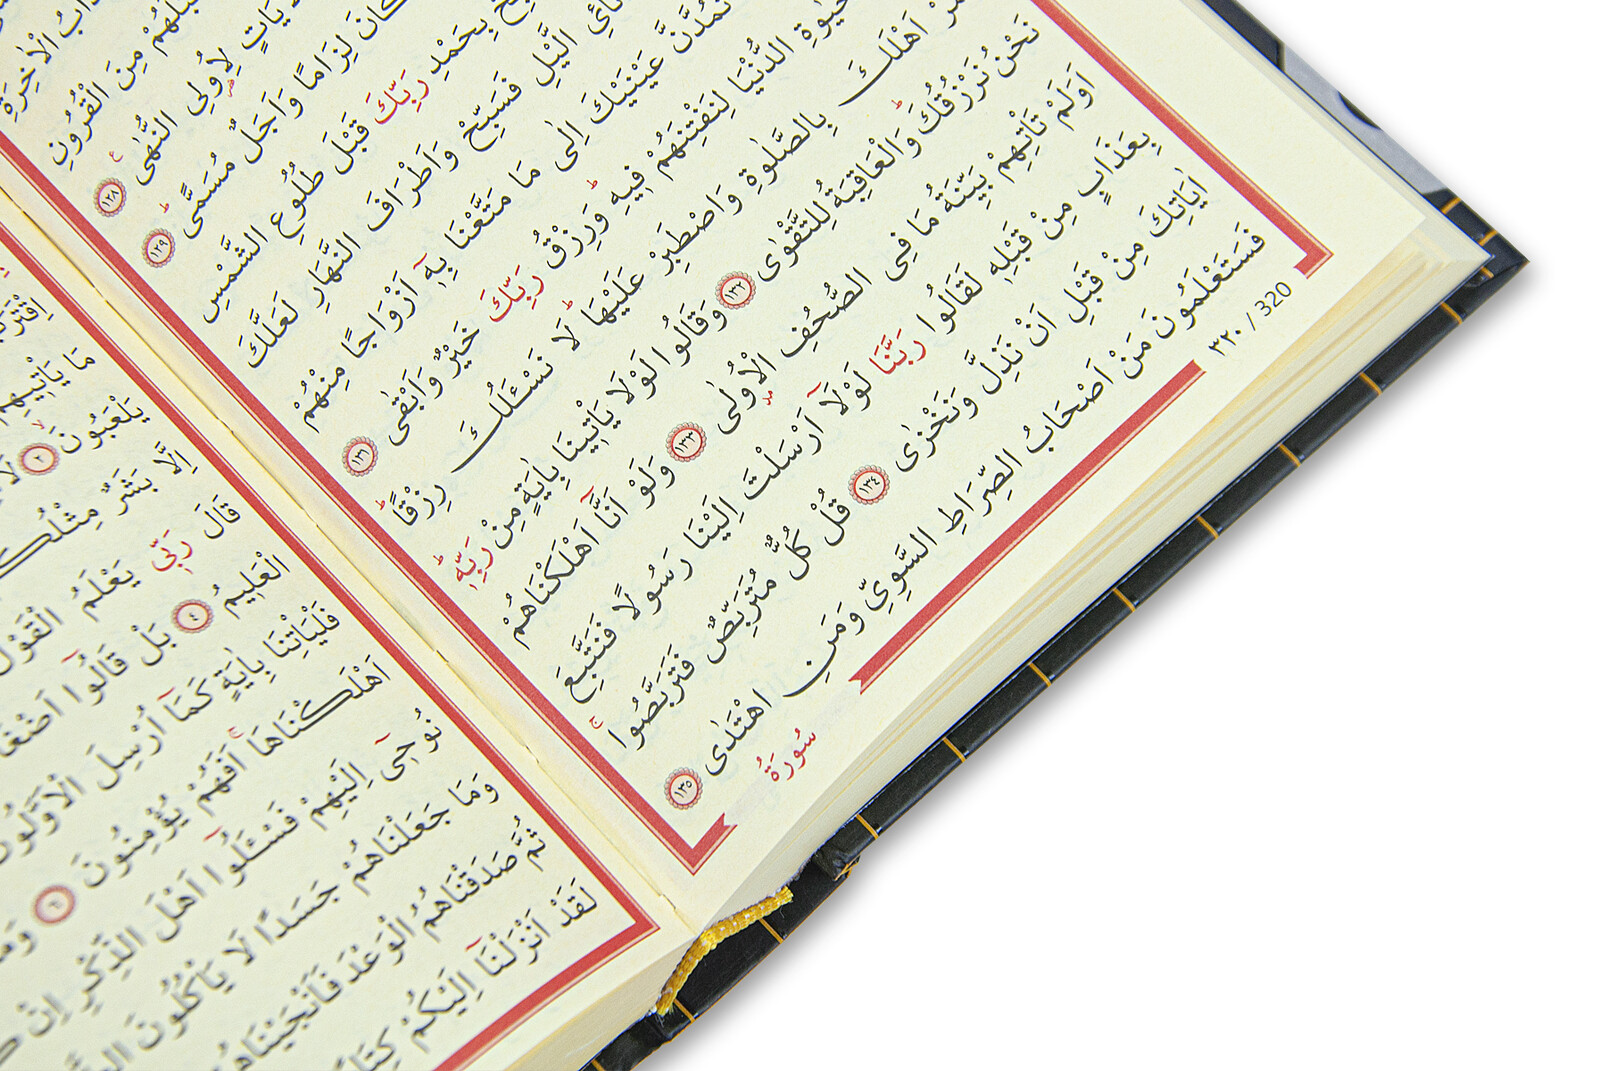 الْاٰخِرَةِ
مِنَ الْقُرُونِ
لِاُو۬لِي النُّهٰى ١٢٨
كَانَ لِزَامًا وَاَجَلٌ مُسَمًّى ١٢٩
بِحَمْدِ رَبِّكَ قَبْلَ طُلُوعِ الشَّمْسِ
الَّيْلِ فَسَبِّحْ وَاَطْرَافَ النَّهَارِ لَعَلَّكَ
تَمُدَّنَّ عَيْنَيْكَ اِلٰى مَا مَتَّعْنَا بِهٖٓ اَزْوَاجًا مِنْهُمْ
الدُّنْيَا لِنَفْتِنَهُمْ فِيهِ وَرِزْقُ رَبِّكَ خَيْرٌ وَاَبْقٰى ١٣١
اَهْلَكَ بِالصَّلٰوةِ وَاصْطَبِرْ عَلَيْهَا لَا نَسْـَٔلُكَ رِزْقًا
نَحْنُ نَرْزُقُكَ وَالْعَاقِبَةُ لِلتَّقْوٰى ١٣٢ وَقَالُوا لَوْلَا يَاْتِينَا بِاٰيَةٍ مِنْ رَبِّهٖ
اَوَلَمْ تَاْتِهِمْ بَيِّنَةُ مَا فِي الصُّحُفِ الْاُو۫لٰى ١٣٣ وَلَوْ اَنَّٓا اَهْلَكْنَاهُمْ
بِعَذَابٍ مِنْ قَبْلِهٖ لَقَالُوا رَبَّنَا لَوْلَٓا اَرْسَلْتَ اِلَيْنَا رَسُولًا فَنَتَّبِعَ
اٰيَاتِكَ مِنْ قَبْلِ اَنْ نَذِلَّ وَنَخْزٰى ١٣٤ قُلْ كُلٌّ مُتَرَبِّصٌ فَتَرَبَّصُوا
فَسَتَعْلَمُونَ مَنْ اَصْحَابُ الصِّرَاطِ السَّوِيِّ وَمَنِ اهْتَدٰى ١٣٥
٣٢٠ / 320
سُورَةُ
مَا يَاْتِيهِمْ
يَلْعَبُونَ ٢
اِلَّا بَشَرٌ مِثْلُكُمْ
قَالَ رَبِّي يَعْلَمُ الْقَوْلَ
الْعَلِيمُ ٤ بَلْ قَالُٓوا اَضْغَاثُ
فَلْيَاْتِنَا بِاٰيَةٍ كَمَٓا اُرْسِلَ الْاَوَّلُونَ
اَهْلَكْنَاهَا اَفَهُمْ يُؤْمِنُونَ ٦
نُوحِٓي اِلَيْهِمْ فَسْـَٔلُٓوا اَهْلَ الذِّكْرِ اِنْ
وَمَا جَعَلْنَاهُمْ جَسَدًا لَا يَاْكُلُونَ
ثُمَّ صَدَقْنَاهُمُ الْوَعْدَ فَاَنْجَيْنَاهُمْ
لَقَدْ اَنْزَلْنَٓا اِلَيْكُمْ